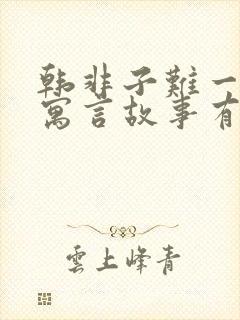 韩非子難一
寓言故事有
雲上峰青